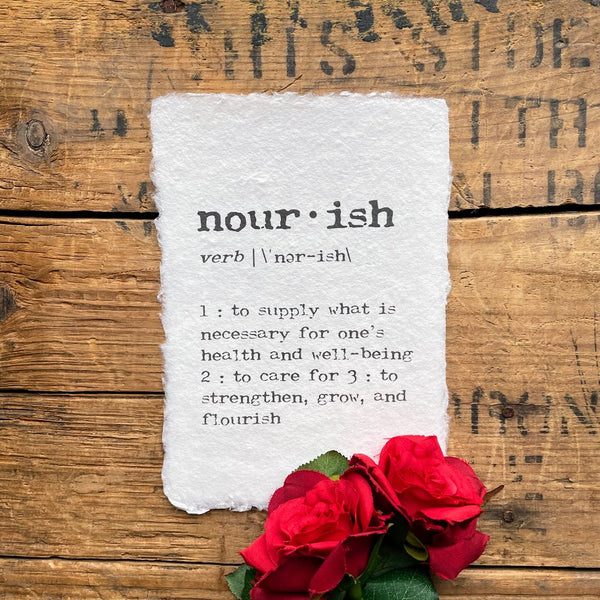 nour·ish
verb | \ˈnər-ish\
1 : to supply what is
necessary for one's
health and well-being
2 : to care for 3 : to
strengthen, grow, and
flourish